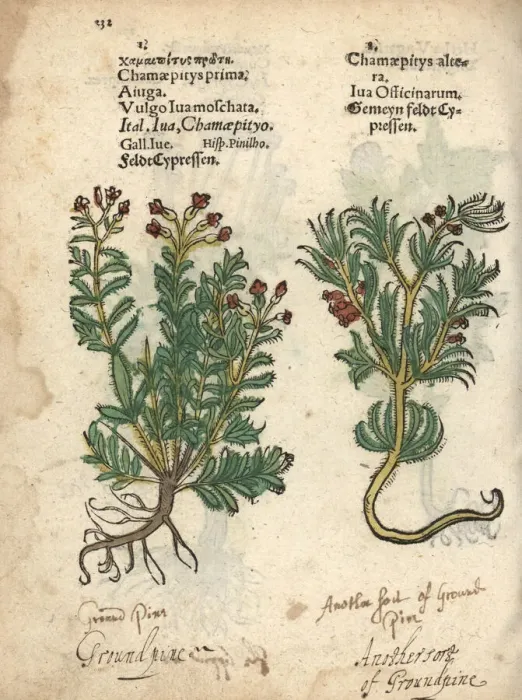 232
1.
χαμαιπίτυς πρώτη.
Chamæpitys prima.
Aiuga.
Vulgo Iua moſchata.
Ital. Iua, Chamæpityo.
Gall. Iue. Hiſp. Pinilho.
Feldt Cypreſſen.
2.
Chamæpitys alte⸗
ra.
Iua Officinarum.
Gemeyn feldt Cy⸗
preſſen.
Ground Pine
Groundpine
Another ſort of Ground
Pine
Another sort
of Groundpine